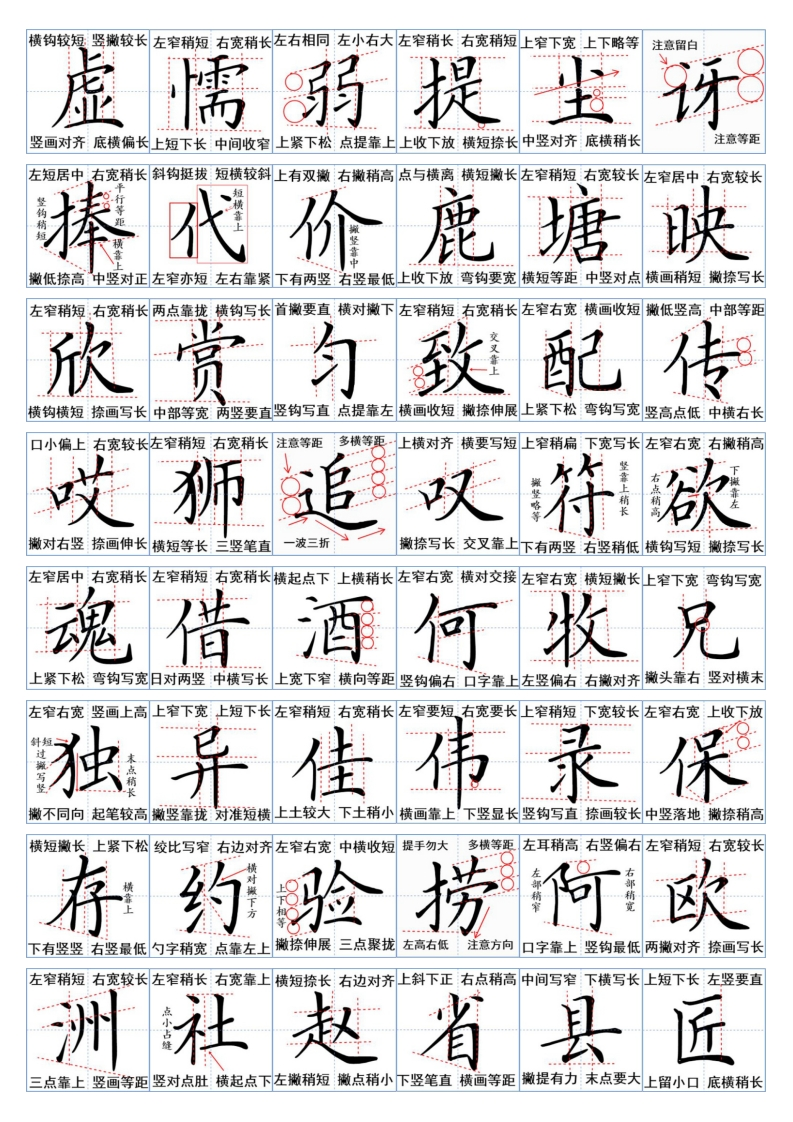 横钩较短 竖撇较长
虚
竖画对齐 底横偏长
左窄稍短 右宽稍长
懦
上短下长 中间收窄
左右相同 左小右大
弱
上紧下松 点提靠上
左窄稍长 右宽稍短
提
上收下放 横短捺长
上窄下宽 上下略等
尘
中竖对齐 底横稍长
注意留白
讶
注意等距
左短居中 右宽稍长
竖钩稍短
捧
平行等距
横靠上
撇低捺高 中竖对正
斜钩挺拔 短横较斜
代
短横靠上
左窄亦短 左右靠紧
上有双撇 右撇稍高
价
撇竖靠中
下有两竖 右竖最低
点与横离 横短撇长
鹿
上收下放 弯钩要宽
左窄稍短 右宽稍长
塘
横短等距 中竖对点
左窄居中 右宽较长
映
横画稍短 撇捺写长
左窄稍短 右宽稍长
欣
横钩横短 捺画写长
两点靠拢 横钩写长
赏
中部等宽 两竖要直
首撇要直 横对撇下
匀
竖钩写直 点提靠左
左窄稍短 右宽稍长
致
交叉靠上
横画收短 撇捺伸展
左窄右宽 横画收短
配
上紧下松 弯钩写宽
撇低竖高 中部等距
传
竖高点低 中横右长
口小偏上 右宽较长
哎
撇对右竖 捺画伸长
左窄稍短 右宽稍长
狮
横短等长 三竖笔直
注意等距 多横等距
追
一波三折
上横对齐 横要写短
叹
撇捺写长 交叉靠上
上窄稍扁 下宽写长
撇竖略等
符
竖靠上稍长
下有两竖 右竖稍低
左窄右宽 右撇稍高
右点稍高
欲
下撇靠左
横钩写短 撇捺写长
左窄居中 右宽稍长
魂
上紧下松 弯钩写宽
左窄稍短 右宽稍长
借
日对两竖 中横写长
横起点下 上横稍长
酒
上宽下窄 横向等距
左窄右宽 横对交接
何
竖钩偏右 口字靠上
左窄右宽 横短撇长
牧
左竖偏右 右撇对齐
上窄下宽 弯钩写宽
兄
撇头靠右 竖对横末
左窄右宽 竖画上高
斜过撇写竖
短
独
末点稍长
撇不同向 起笔较高
上窄下宽 上短下长
异
撇竖靠拢 对准短横
左窄稍短 右宽稍长
佳
上土较大 下土稍小
左窄要短 右宽要长
伟
横画靠上 下竖显长
上窄稍短 下宽较长
录
竖钩写直 捺画较长
左窄右宽 上收下放
保
中竖落地 撇捺稍高
横短撇长 上紧下松
存
横靠上
下有竖竖 右竖最低
绞比写窄 右边对齐
约
横对撇下方
勺字稍宽 点靠左上
左窄右宽 中横收短
上下相等
验
撇捺伸展 三点聚拢
提手勿大 多横等距
捞
左高右低 注意方向
左耳稍高 右竖偏右
左部稍窄
阿
右部稍宽
口字靠上 竖钩最低
左窄稍短 右宽较长
欧
两撇对齐 捺画写长
左窄稍短 右宽较长
洲
三点靠上 竖画等距
左窄稍长 右宽靠上
点小占缝
社
竖对点肚 横起点下
横短捺长 右边对齐
赵
左撇稍短 撇点稍小
上斜下正 右点稍高
省
下竖笔直 横画等距
中间写窄 下横写长
县
撇提有力 末点要大
上短下长 左竖要直
匠
上留小口 底横稍长